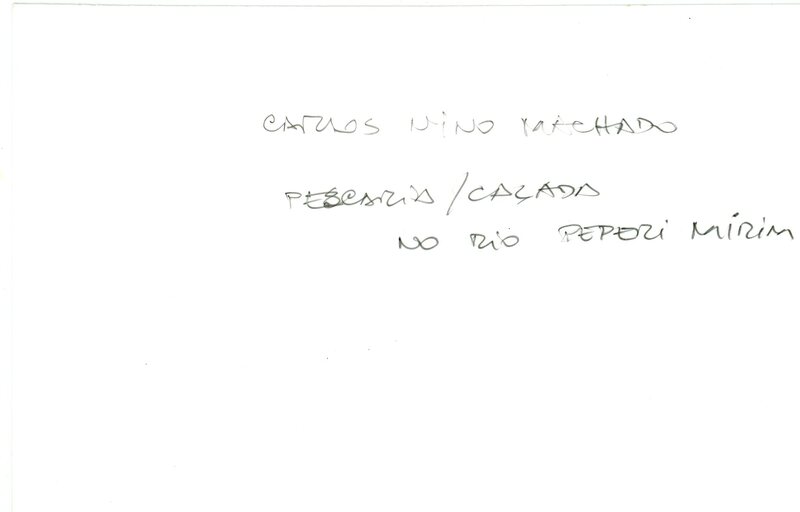 CARLOS NINO MACHADO
PESCARIA/CAÇADA
NO RIO PEPERI MÍRIM